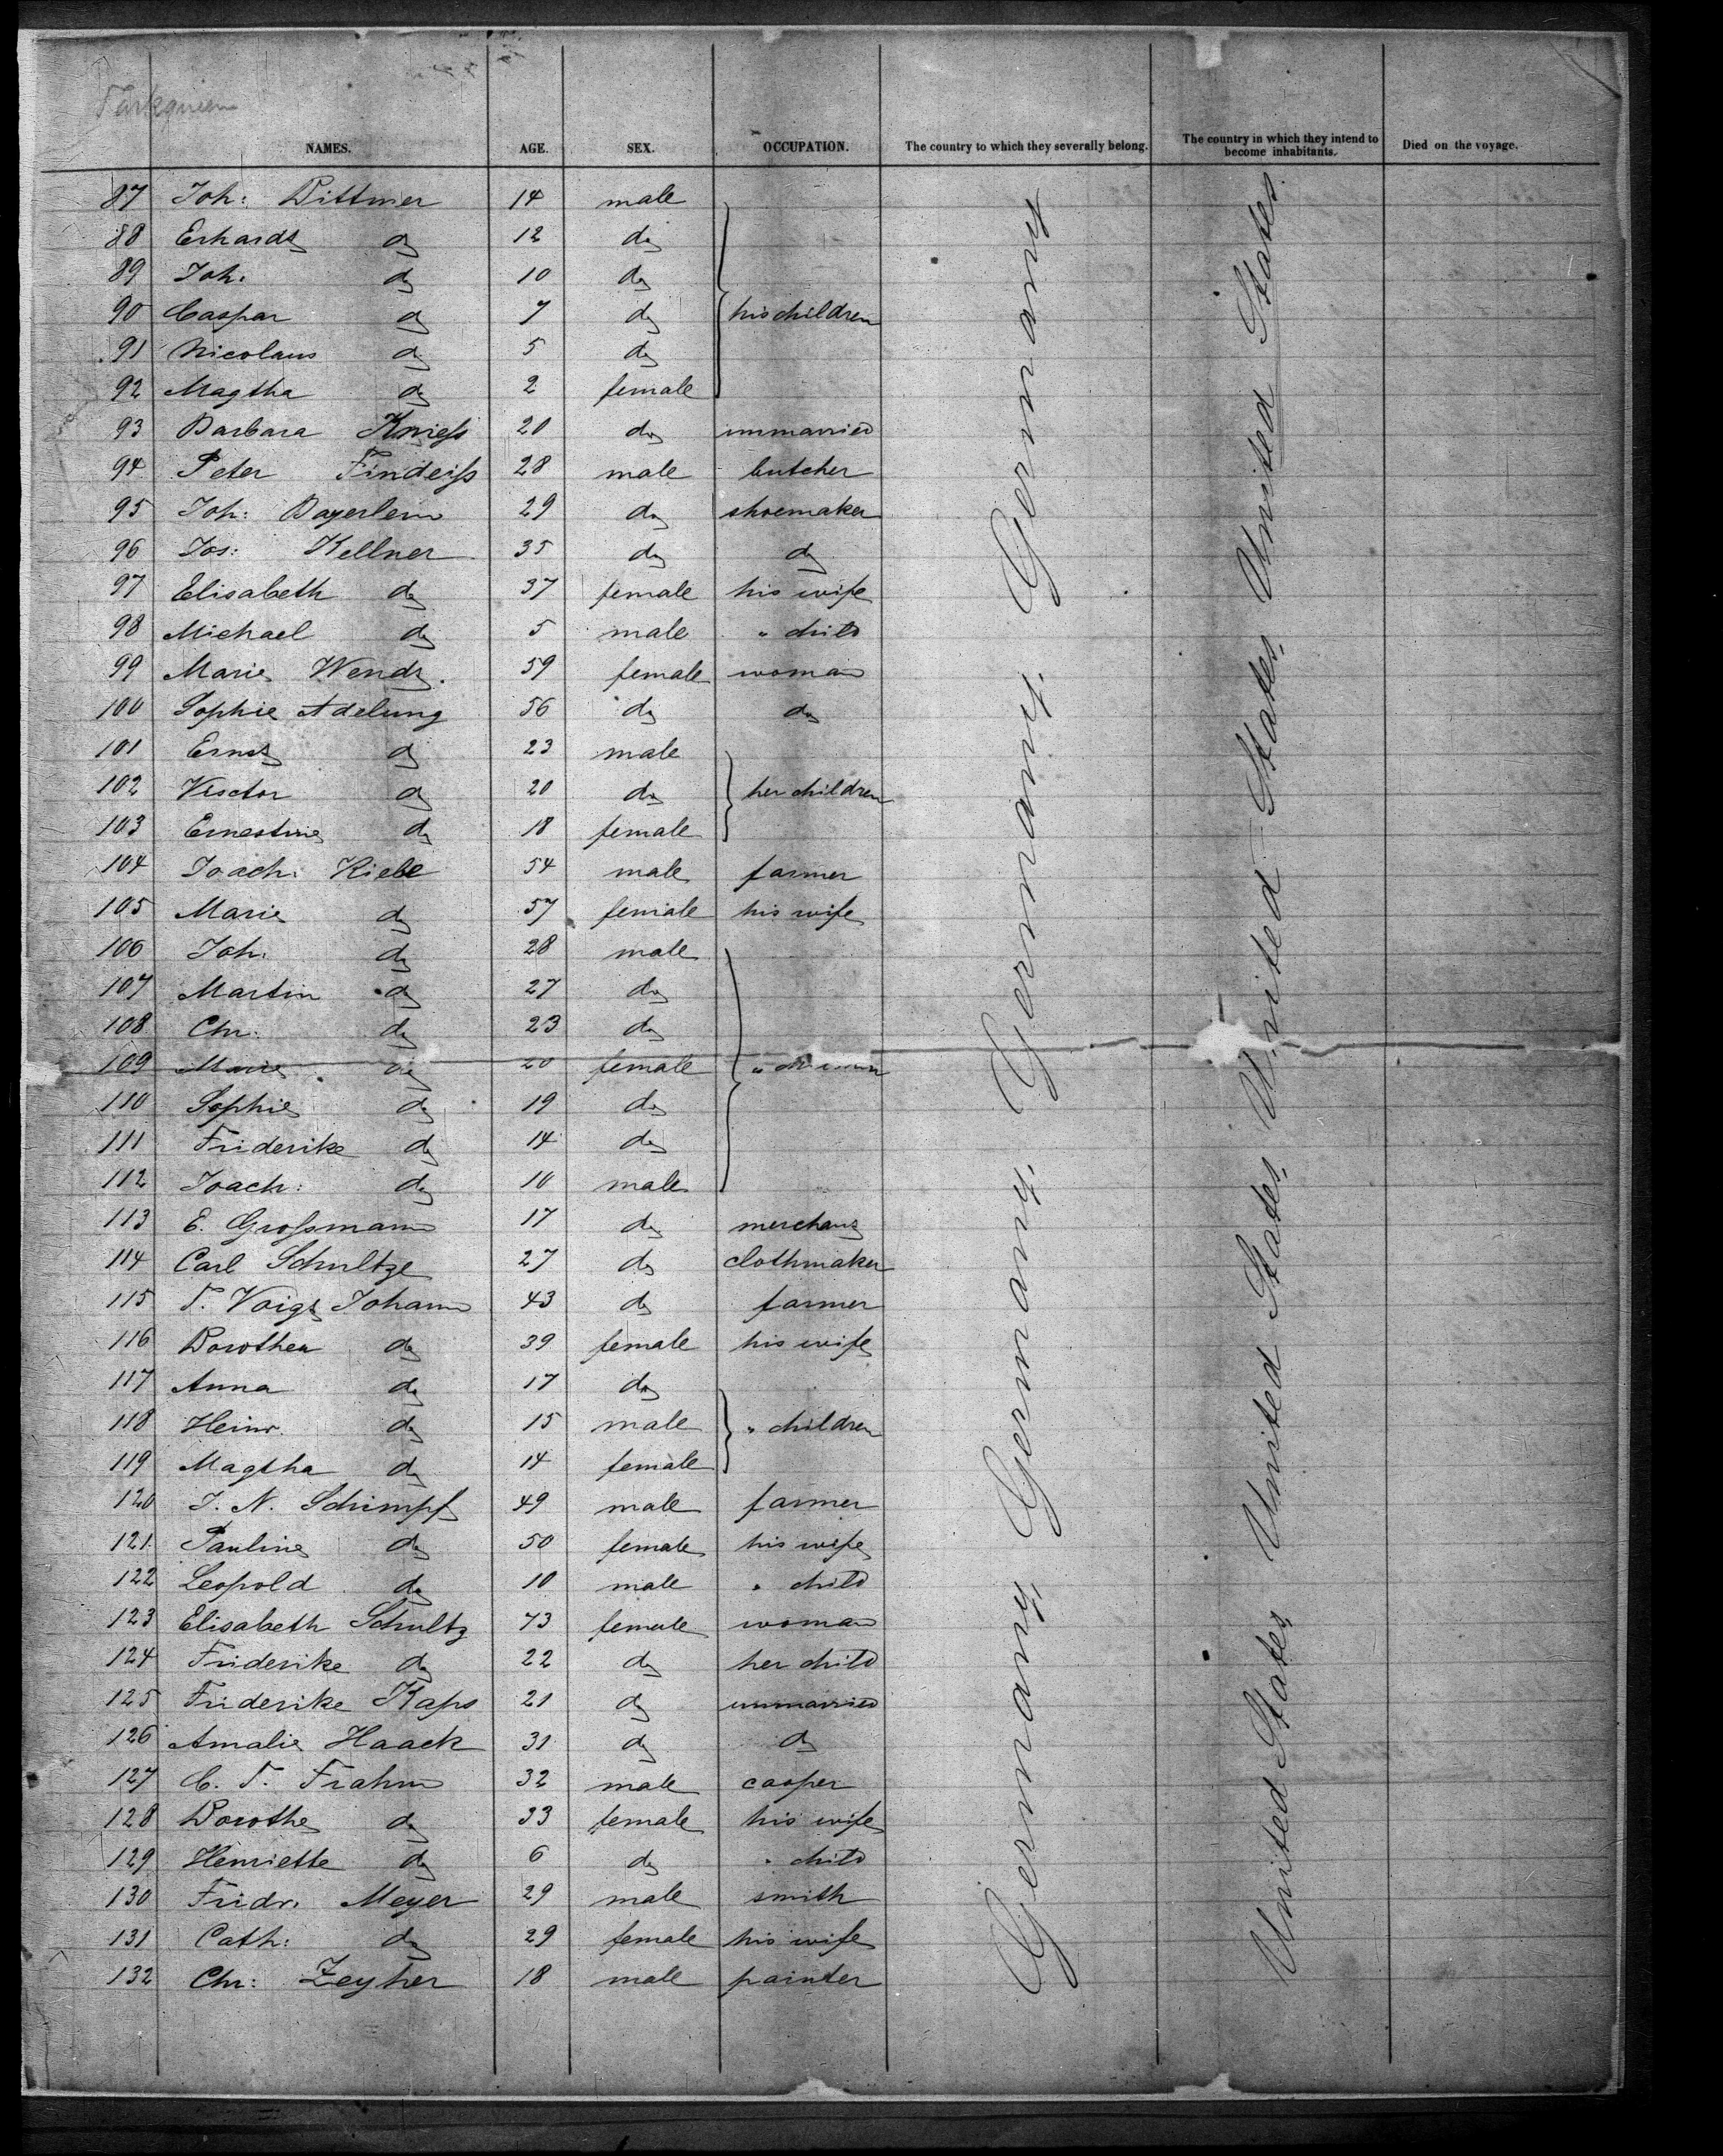 NAMES. AGE. SEX. OCCUPATION. The country to which they severally belong. The country in which they intend to become inhabitants. Died on the voyage.
87 Joh: Dittmer 14 male
88 Erhardt do 12 do
89 Joh. do 10 do
90 Caspar do 7 do his children
91 Nicolaus do 5 do
92 Magtha do 2 female
93 Barbara Knieſs 20 do unmarried
94 Peter Findeiſs 28 male butcher
95 Joh: Bayerlein 29 do shoemaker
96 Jos: Kellner 35 do do
97 Elisabeth do 37 female his wife
98 Michael do 5 male " child
99 Marie Wendt. 59 female woman
100 Sophie Adelung 56 do do
101 Ernst do 23 male
102 Victor do 20 do her children
103 Ernestine do 18 female
104 Joach: Kiebe 54 male farmer
105 Marie do 57 female his wife
106 Joh. do 28 male
107 Martin do 27 do
108 Chr. do 23 do
109 Marie do 20 female " children
110 Sophie do 19 do
111 Friderike do 14 do
112 Joach: do 10 male
113 E. Groſsmann 17 do merchant
114 Carl Schultze 27 do clothmaker
115 T. Voigt Johann 43 do farmer
116 Dorothea do 39 female his wife
117 Anna do 17 do
118 Heinr. do 15 male " children
119 Magtha do 14 female
120 J. N. Schimpf 49 male farmer
121. Pauline do 50 female his wife
122 Leopold do 10 male " child
123 Elisabeth Schultz 73 female woman
124 Friderike do 22 do her child
125 Friderike Kaps 21 do unmarried
126 Amalie Haack 31 do do
127 C. T. Frahm 32 male cooper
128 Dorothe do 33 female his wife
129 Henriette do 6 do " child
130 Fridr. Meyer 29 male smith
131 Cath: do 29 female his wife
132 Chr: Zeyher 18 male painter
Germany, Germany, Germany. Germany
United States, United States, United States, United States